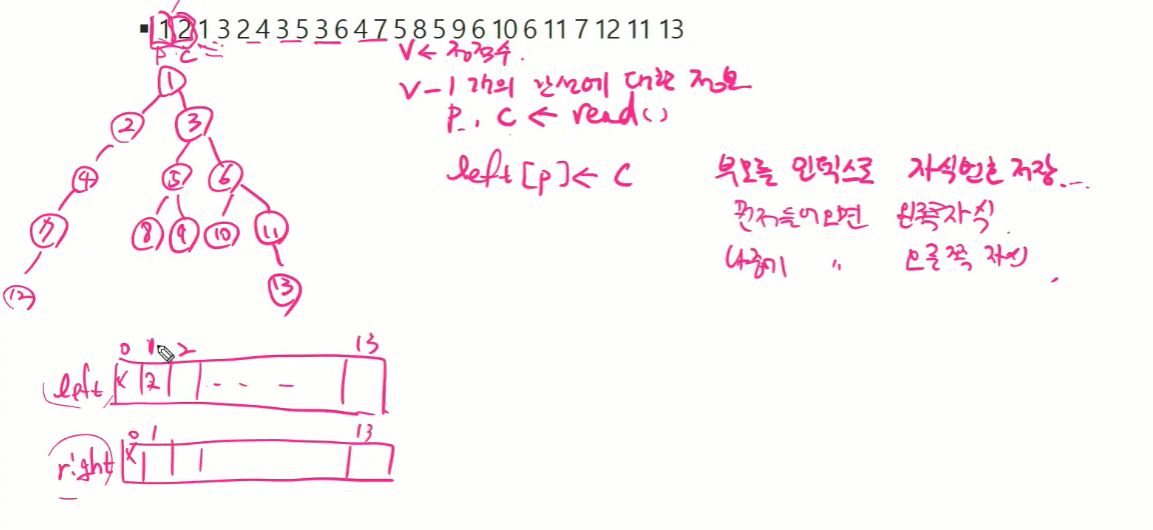 ▪ 1 2 1 3 2 4 3 5 3 6 4 7 5 8 5 9 6 10 6 11 7 12 11 13
P C
V ← 정점수.
V-1개의 간선에 대한 정보
P, C ← read()
left[P] ← C
부모를 인덱스로 자식번호 저장...
먼저들어오면 왼쪽자식
나중에 " 오른쪽 자식
1
2 3
4 5 6
7 8 9 10 11
12 13
0 1 2 13
left X 2 - - -
0 1 13
right X